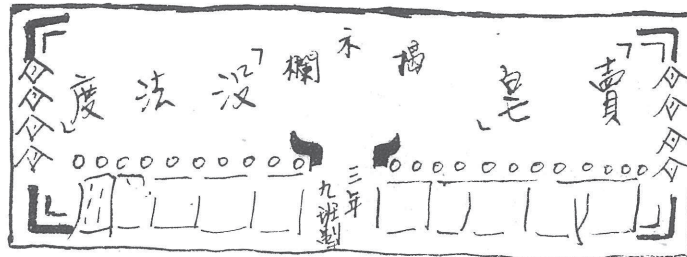 「賣皂」
揭示欄
「沒法度」
三年
九班製